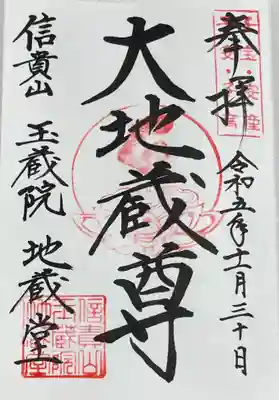 奉拝
令和五年十一月三十日
大地蔵尊
信貴山 玉蔵院 地蔵堂
信貴山
玉蔵院